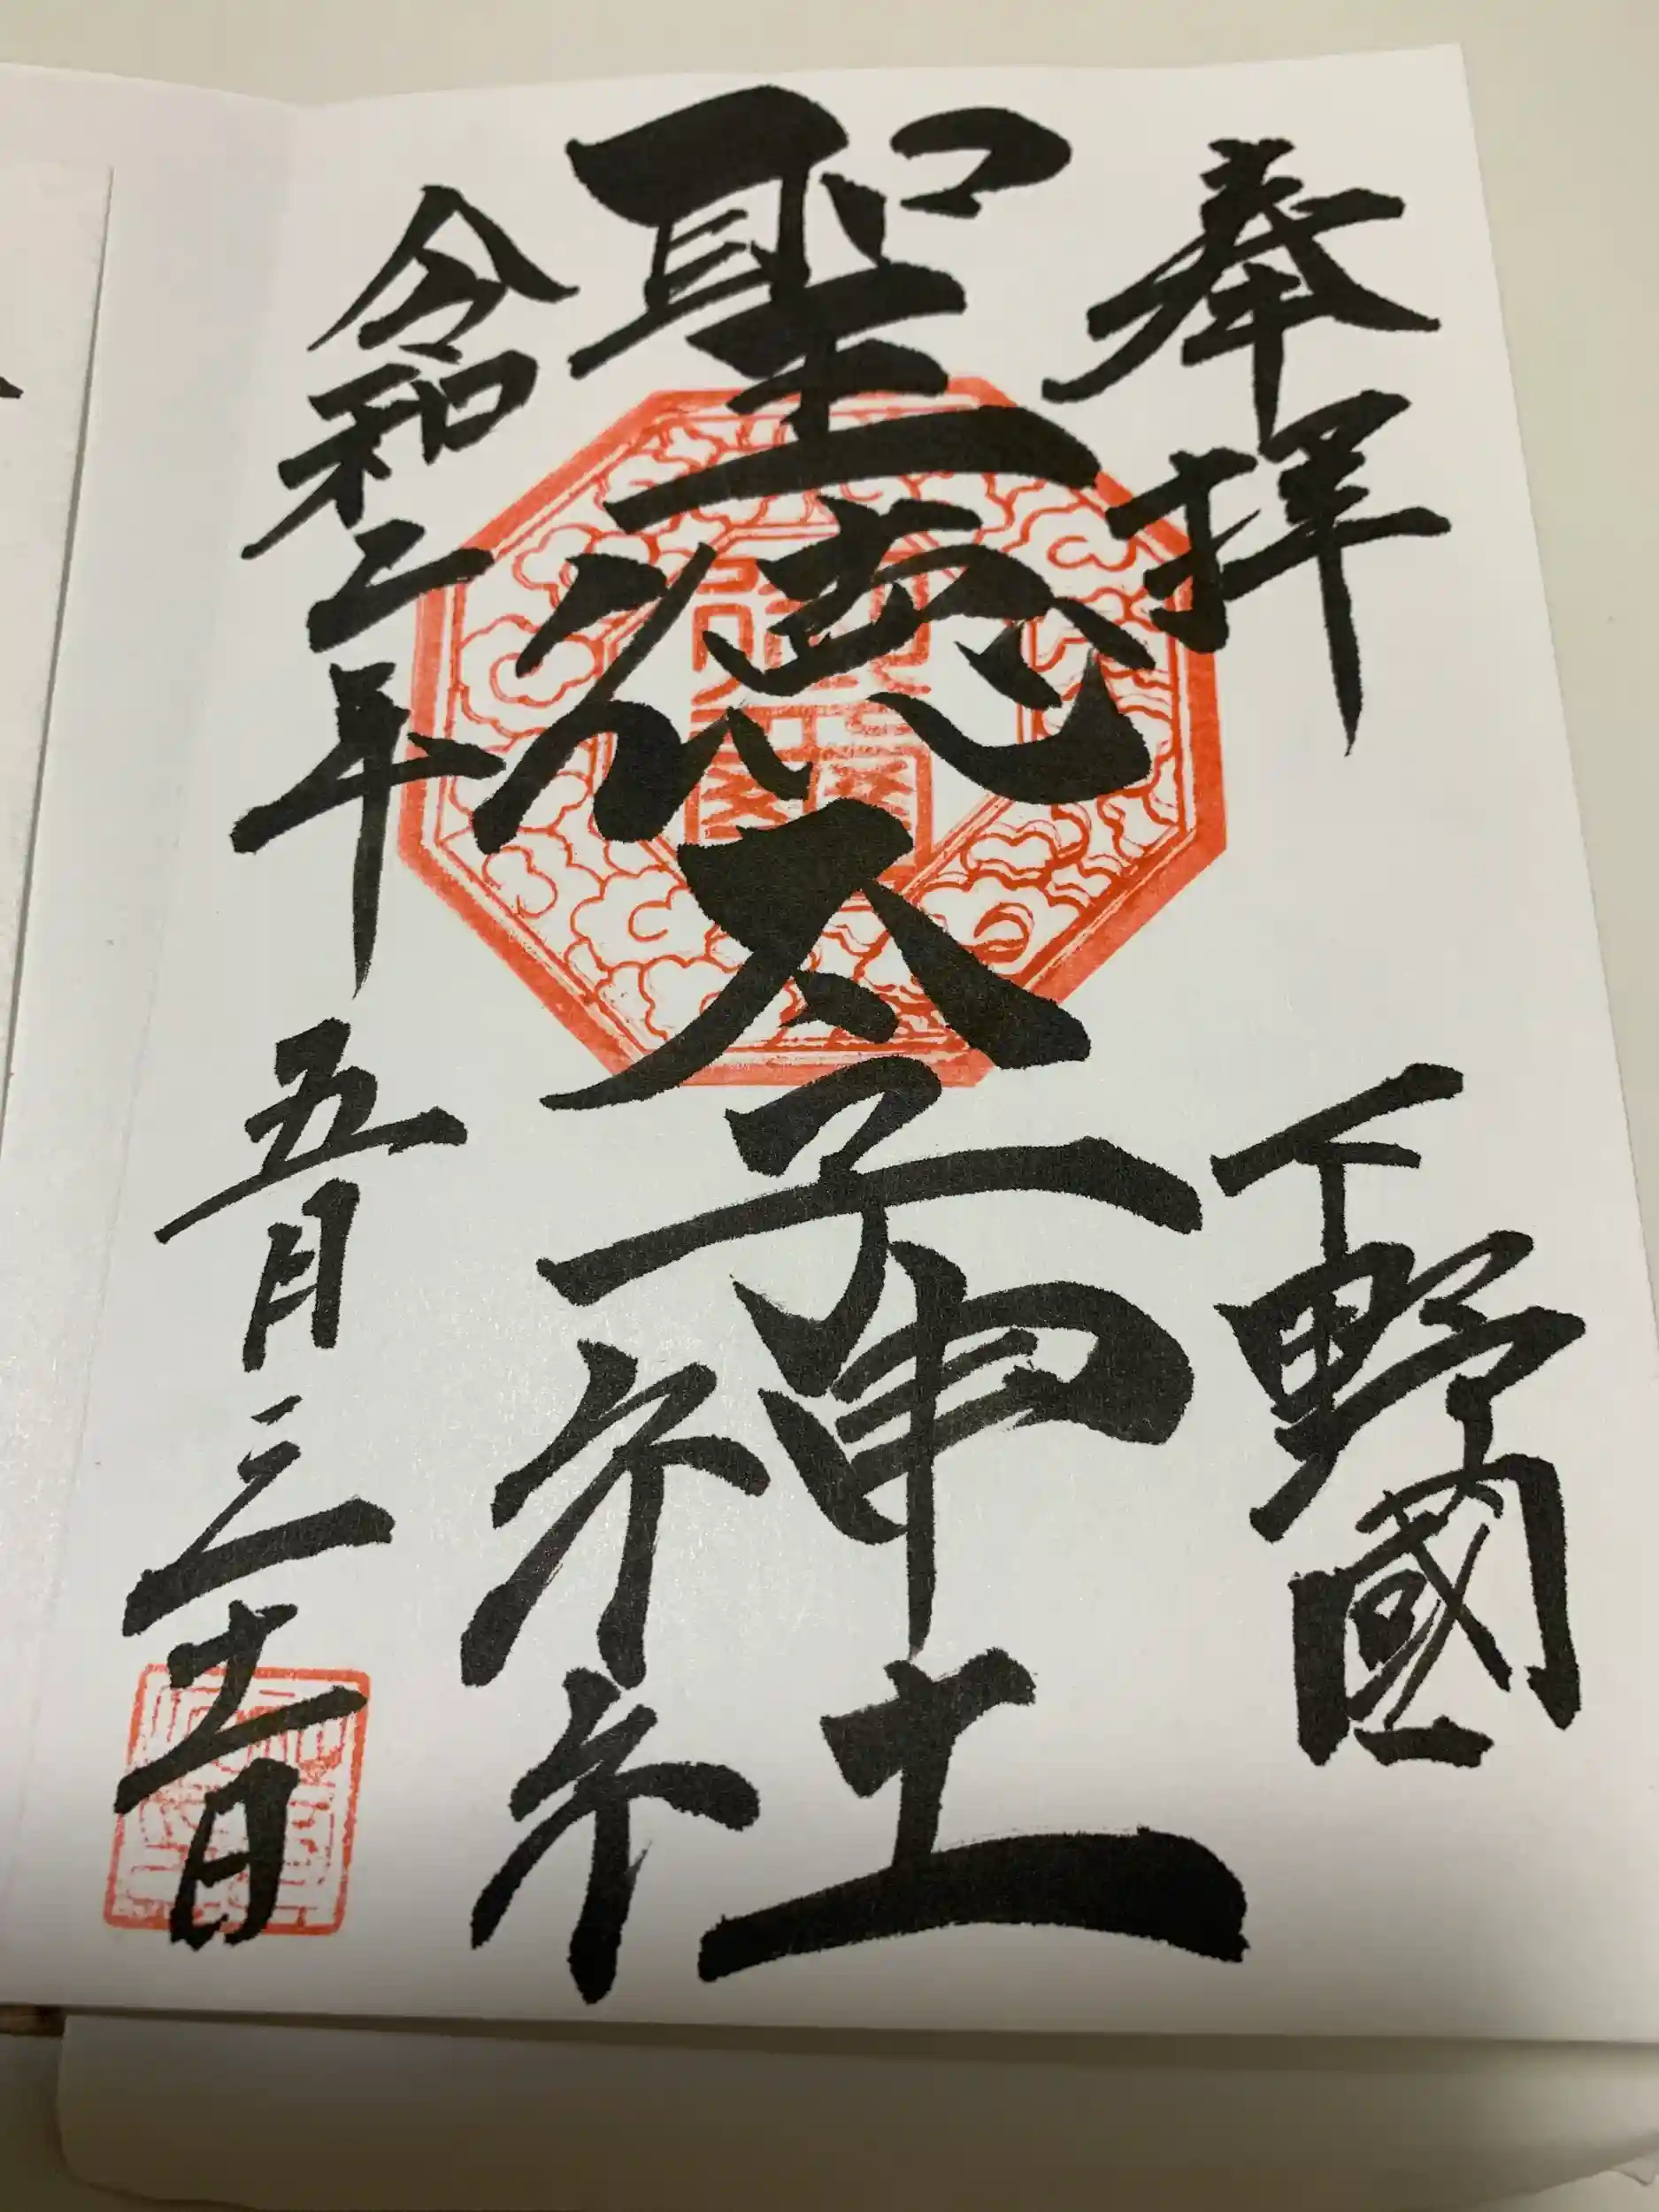 奉拝
下野國
聖徳太子神社
令和二年五月三十一日